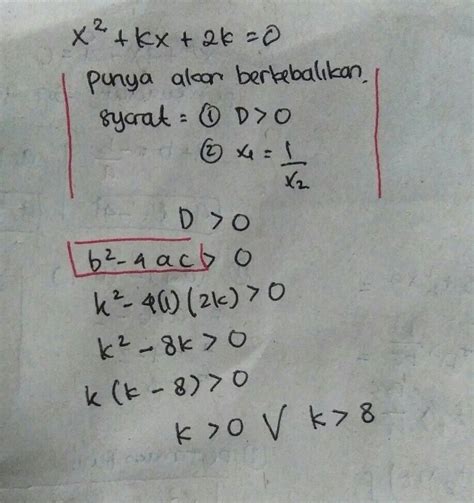 x² + kx + 2k = 0
punya akar berkebalikan.
syarat = ① D > 0
② x₁ = 1/x₂
D > 0
b² - 4 a c > 0
k² - 4(1) (2k) > 0
k² - 8k > 0
k (k - 8) > 0
k > 0 V k > 8